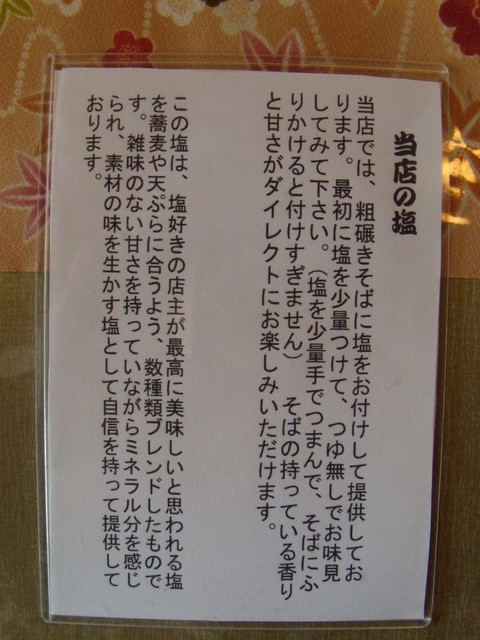 当店の塩
当店では、粗碾きそばに塩をお付けして提供してお
ります。最初に塩を少量つけて、つゆ無しでお味見
してみて下さい。（塩を少量手でつまんで、そばにふ
りかけると付けすぎません）　そばの持っている香り
と甘さがダイレクトにお楽しみいただけます。
この塩は、塩好きの店主が最高に美味しいと思われる塩
を蕎麦や天ぷらに合うよう、数種類ブレンドしたもので
す。雑味のない甘さを持っていながらミネラル分を感じ
られ、素材の味を生かす塩として自信を持って提供して
おります。